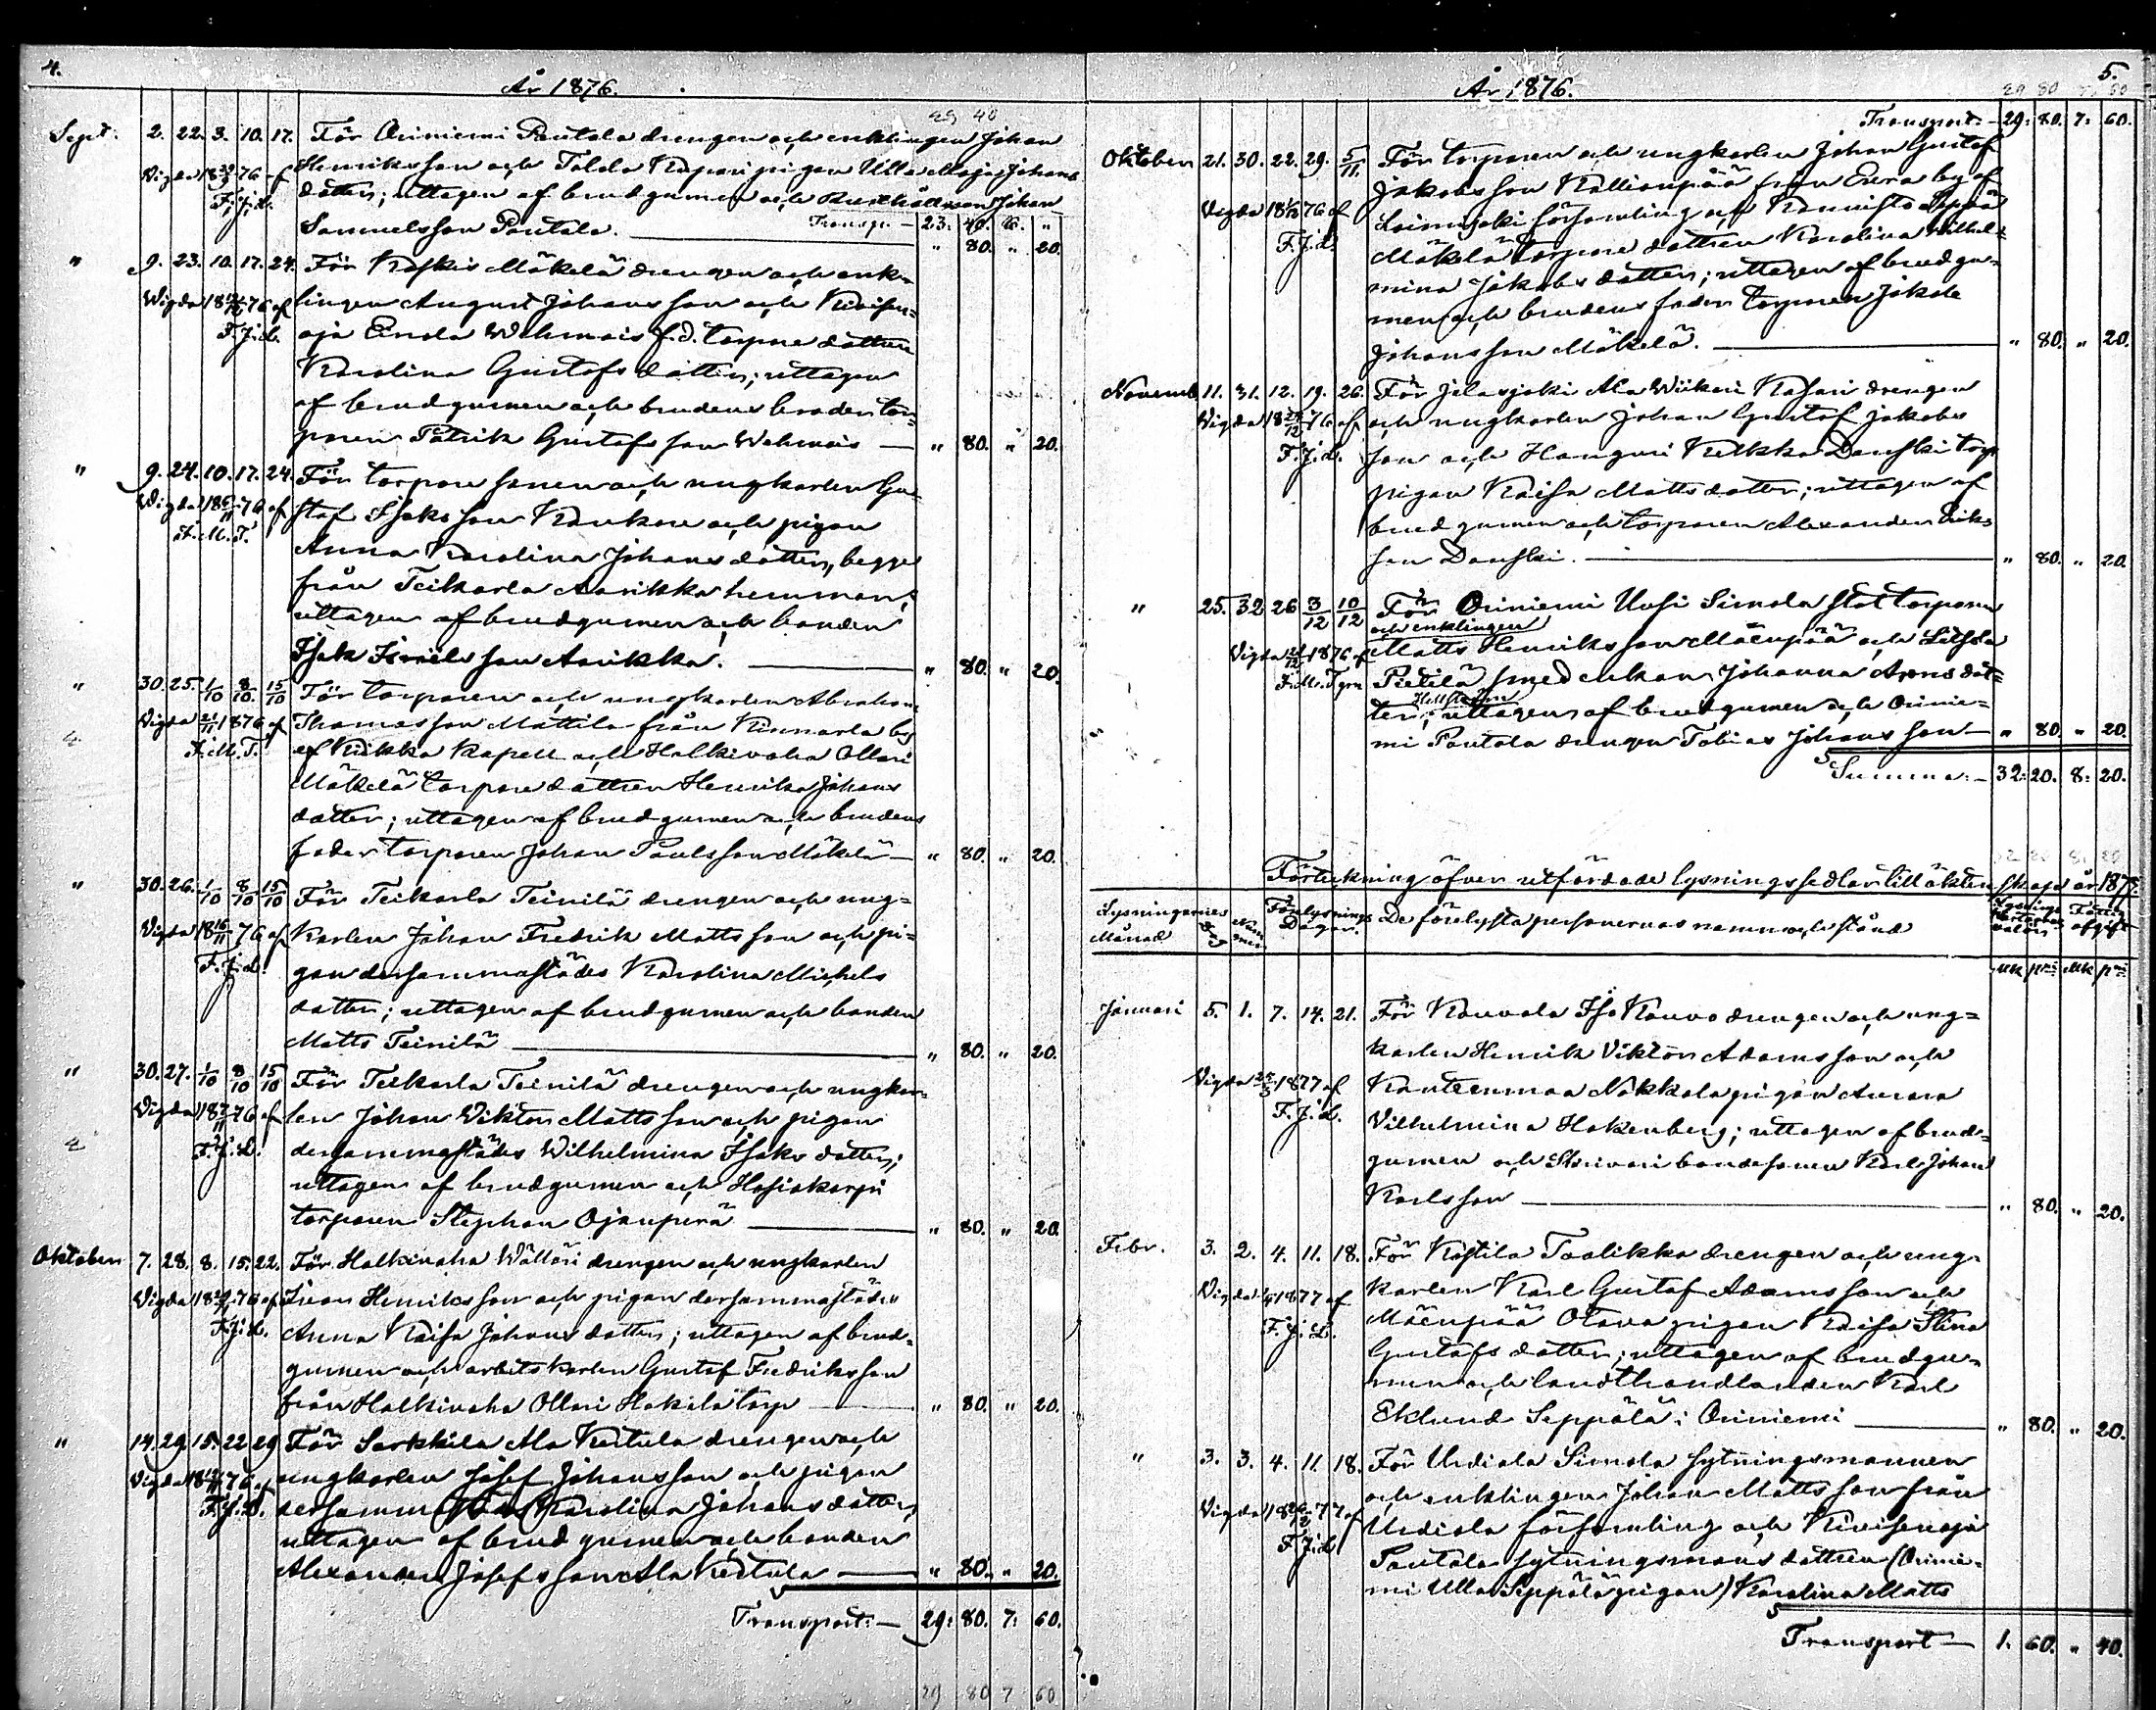 4.
År 1876.
29 40
Sept. 2. 22. 3. 10. 17. För Oriniemi Pautala drengen och enklingen Johan
Vigda 18 76 af Henriksson och Talala Kaspari pigan Ulla Maja Johans
F. J. L. dotter; uttagen af brudgumen och Johan
Samuelsson Pautala. Transp. — 23. 40. 6. "
" 80. " 20.
" 9. 23. 10. 17. 24. För Koskis Mäkelä drengen och enk=
Wigda 18 76 af lingen August Johansson och Kivisen=
F. J. L. oja Wehmais f.d. torpare dottren
Karolina Gustafsdotter; uttagen
af brudgumen och brudens broder tor=
paren Patrik Gustafsson Wehmais — " 80. " 20.
" 9. 24. 10. 17. 24. För torpare sonen och ungkarlen Gu=
Wigda 18 76 af staf Isaksson och pigan
F. M. T. Anna Karolina Johansdotter, begge
från Teikarla Aarikka hemman;
uttagen af brudgumen och bonden
Isak Israelsson Aarikka. — " 80. " 20.
" 30. 25. 1/10 8/10. 15/10 För torparen och ungkarlen Abraham
Vigda 1876 af Thomasson Mattila från Kinnarla by
F. M. T. af Kiikka Kapell och Halkivaha Ollari
Mäkelä torpare dottren Henrika Johans
dotter; uttagen af brudgumen och brudens
fader torparen Johan Paulsson Mäkelä — " 80. " 20.
" 30. 26. 1/10 8/10 15/10 För Teikarla Teinilä drengen och ung=
Vigda 18 16/11 76 af karlen Johan Fredrik Mattsson och pi=
F. J. L. gan dersammastädes Karolina Michels
dotter; uttagen af brudgumen och bonden
Matts Teinilä — " 80. " 20.
" 30. 27. 1/10 8/10 15/10 För Teikarla Teinilä drengen och ungkar=
Vigda 18 76 af len Johan Viktor Mattsson och pigan
F. J. L. dersammastädes Wilhelmina Isaksdotter;
uttagen af brudgumen och Hosiokorpi
torparen Stephan Ojanperä — " 80. " 20.
Oktober 7. 28. 8. 15. 22. För Halkivaha Wälläri drengen och ungkarlen
Vigda 18 76 af Ivan Henriksson och pigan dersammastädes
F. J. L. Anna Kaisa Johansdotter; uttagen af brud=
gumen och arbetskarlen Gustaf Fredriksson
från Halkivaha Ollari Hakala torp — " 80. " 20.
" 14. 29. 15. 22 29 För Sarkkila Ala Kertula drengen och
Vigda 18 76 af ungkarlen Josef Johansson och pigan
F. J. L. dersammastädes Karolina Johansdotter;
uttagen af brudgumen och bonden
Alexander Josefsson Ala Kertula — " 80. " 20.
Transport: — 29: 80. 7: 60.
29 80 7 60
5.
År 1876.
29 80 7 60
Transport: — 29: 80. 7: 60.
Oktober 21. 30. 22. 29. 5/11. För torparen och ungkarlen Johan Gustaf
Jakobsson Kallionpää från Eura by af
Vigda 18 76 af Loimijoki församling och Kannisto Seppä
F. J. L. Mäkelä torpare dottren Karolina Wilhel=
mina Jakobsdotter; uttagen af brudgu=
men och brudens fader torparen Jakob
Johansson Mäkelä. — " 80. " 20.
Novemb. 11. 31. 12. 19. 26. För Jalasjoki Ala Wiikari drengen
Vigda 18 76 af och ungkarlen Johan Gustaf Jakobs
F. J. L. son och Hanguri Kulkka Danski torp
pigan Kaisa Mattsdotter; uttagen af
brudgumen och torparen Alexander Eriks
son Danski. — " 80. " 20.
" 25. 32 26 3/12 10/12 För Oriniemi Uusi Simola stattorparen
och enklingen
Vigda 1876 af Matts Henriksson Mäenpää och
F. M. T. Pietilä smed enkan Johanna dot=
ter; uttagen af brudgumen och Orinie=
mi Pautala drengen Tobias Johansson — " 80. " 20.
Summa: — 32: 20. 8: 20.
Förteckning öfver utfärdade lysningssedlar till äktenskap år 1877.
Lysningarnes Månad Dag Nummer Förelysnings Dagar. De förelysta personernas namn och stånd Fattig afgift
Mk pni Mk pni
Januari 5. 1. 7. 14. 21. För Kouvola Iso Kouvo drengen och ung=
karlen Henrik Viktor Adamsson och
Vigda 1877 af Kanteenmaa Nokkala pigan Aurora
F. J. L. Vilhelmina Hokenberg; uttagen af brud=
gumen och bondesonen Karl Johan
Karlsson — " 80. " 20.
Febr. 3. 2. 4. 11. 18. För Kostila Taalikka drengen och ung=
Vigda 1877 af karlen Karl Gustaf Adamsson och
F. J. L. Mäenpää Otava pigan Kaisa Stina
Gustafsdotter; uttagen af brudgu=
men och landthandlanden Karl
Eklund Seppälä i Oriniemi — " 80. " 20.
" 3. 3. 4. 11. 18. För Urdiala Simola sytningsmannen
och enklingen Johan Mattsson från
Vigda 18 77 af Urdiala församling och Kivisenoja
F. J. L. Pautala sytningsmans dottren (Orinie=
mi Ulla Seppälä pigan) Karolina Matts
Transport — 1. 60. " 40.